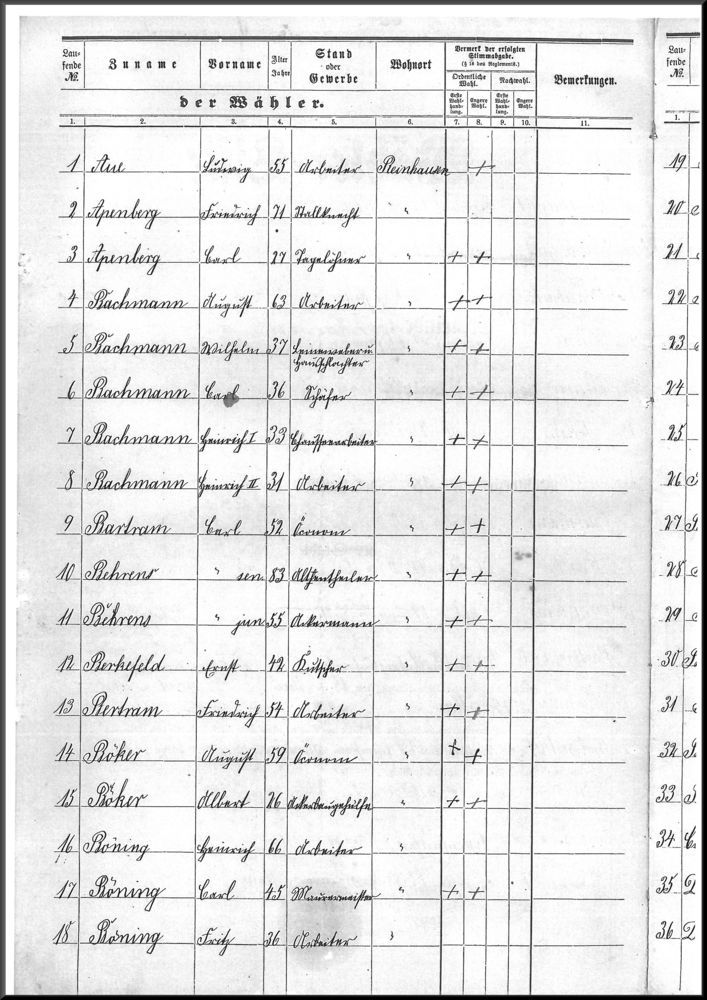 Lau-
fende
№.
Zuname
Vorname
Alter
Jahre
Stand
oder
Gewerbe
Wohnort
Vermerk der erfolgten
Stimmabgabe.
(§ 16 des Reglements.)
Ordentliche
Wahl.
Nachwahl.
Erste
Wahl-
hand-
lung.
Engere
Wahl.
Erste
Wahl-
hand-
lung.
Engere
Wahl.
Bemerkungen.
der Wähler.
1. 2. 3. 4. 5. 6. 7. 8. 9. 10. 11.
1 Aue Ludwig 55 Arbeiter Steinhausen +
2 Apenberg Friedrich 71 Stallknecht "
3 Apenberg Carl 27 Tagelöhner " + +
4 Bachmann August 63 Arbeiter " + +
5 Bachmann Wilhelm 37 Leineweber u. " + +
Hausschlachter
6 Bachmann Carl 36 Schäfer " + +
7 Bachmann Heinrich I 33 Chausseearbeiter " + +
8 Bachmann Heinrich II 31 Arbeiter " + +
9 Bartram Carl 52 Öconom " + +
10 Behrens " sen. 83 Altentheiler " + +
11 Behrens " jun 55 Ackermann " + +
12 Berkefeld Ernst 42 Kutscher " + +
13 Bertram Friedrich 54 Arbeiter " + +
14 Böker August 59 Öconom " + +
15 Böker Albert 26 Ackerbaugehülfe " + +
16 Böning Heinrich 66 Arbeiter "
17 Böning Carl 45 Maurermeister " + +
18 Böning Fritz 36 Arbeiter "
Lau-
fende
№.
1.
19
20
21
22
23
24
25
26
27
28
29
30
31
32
33
34
35
36